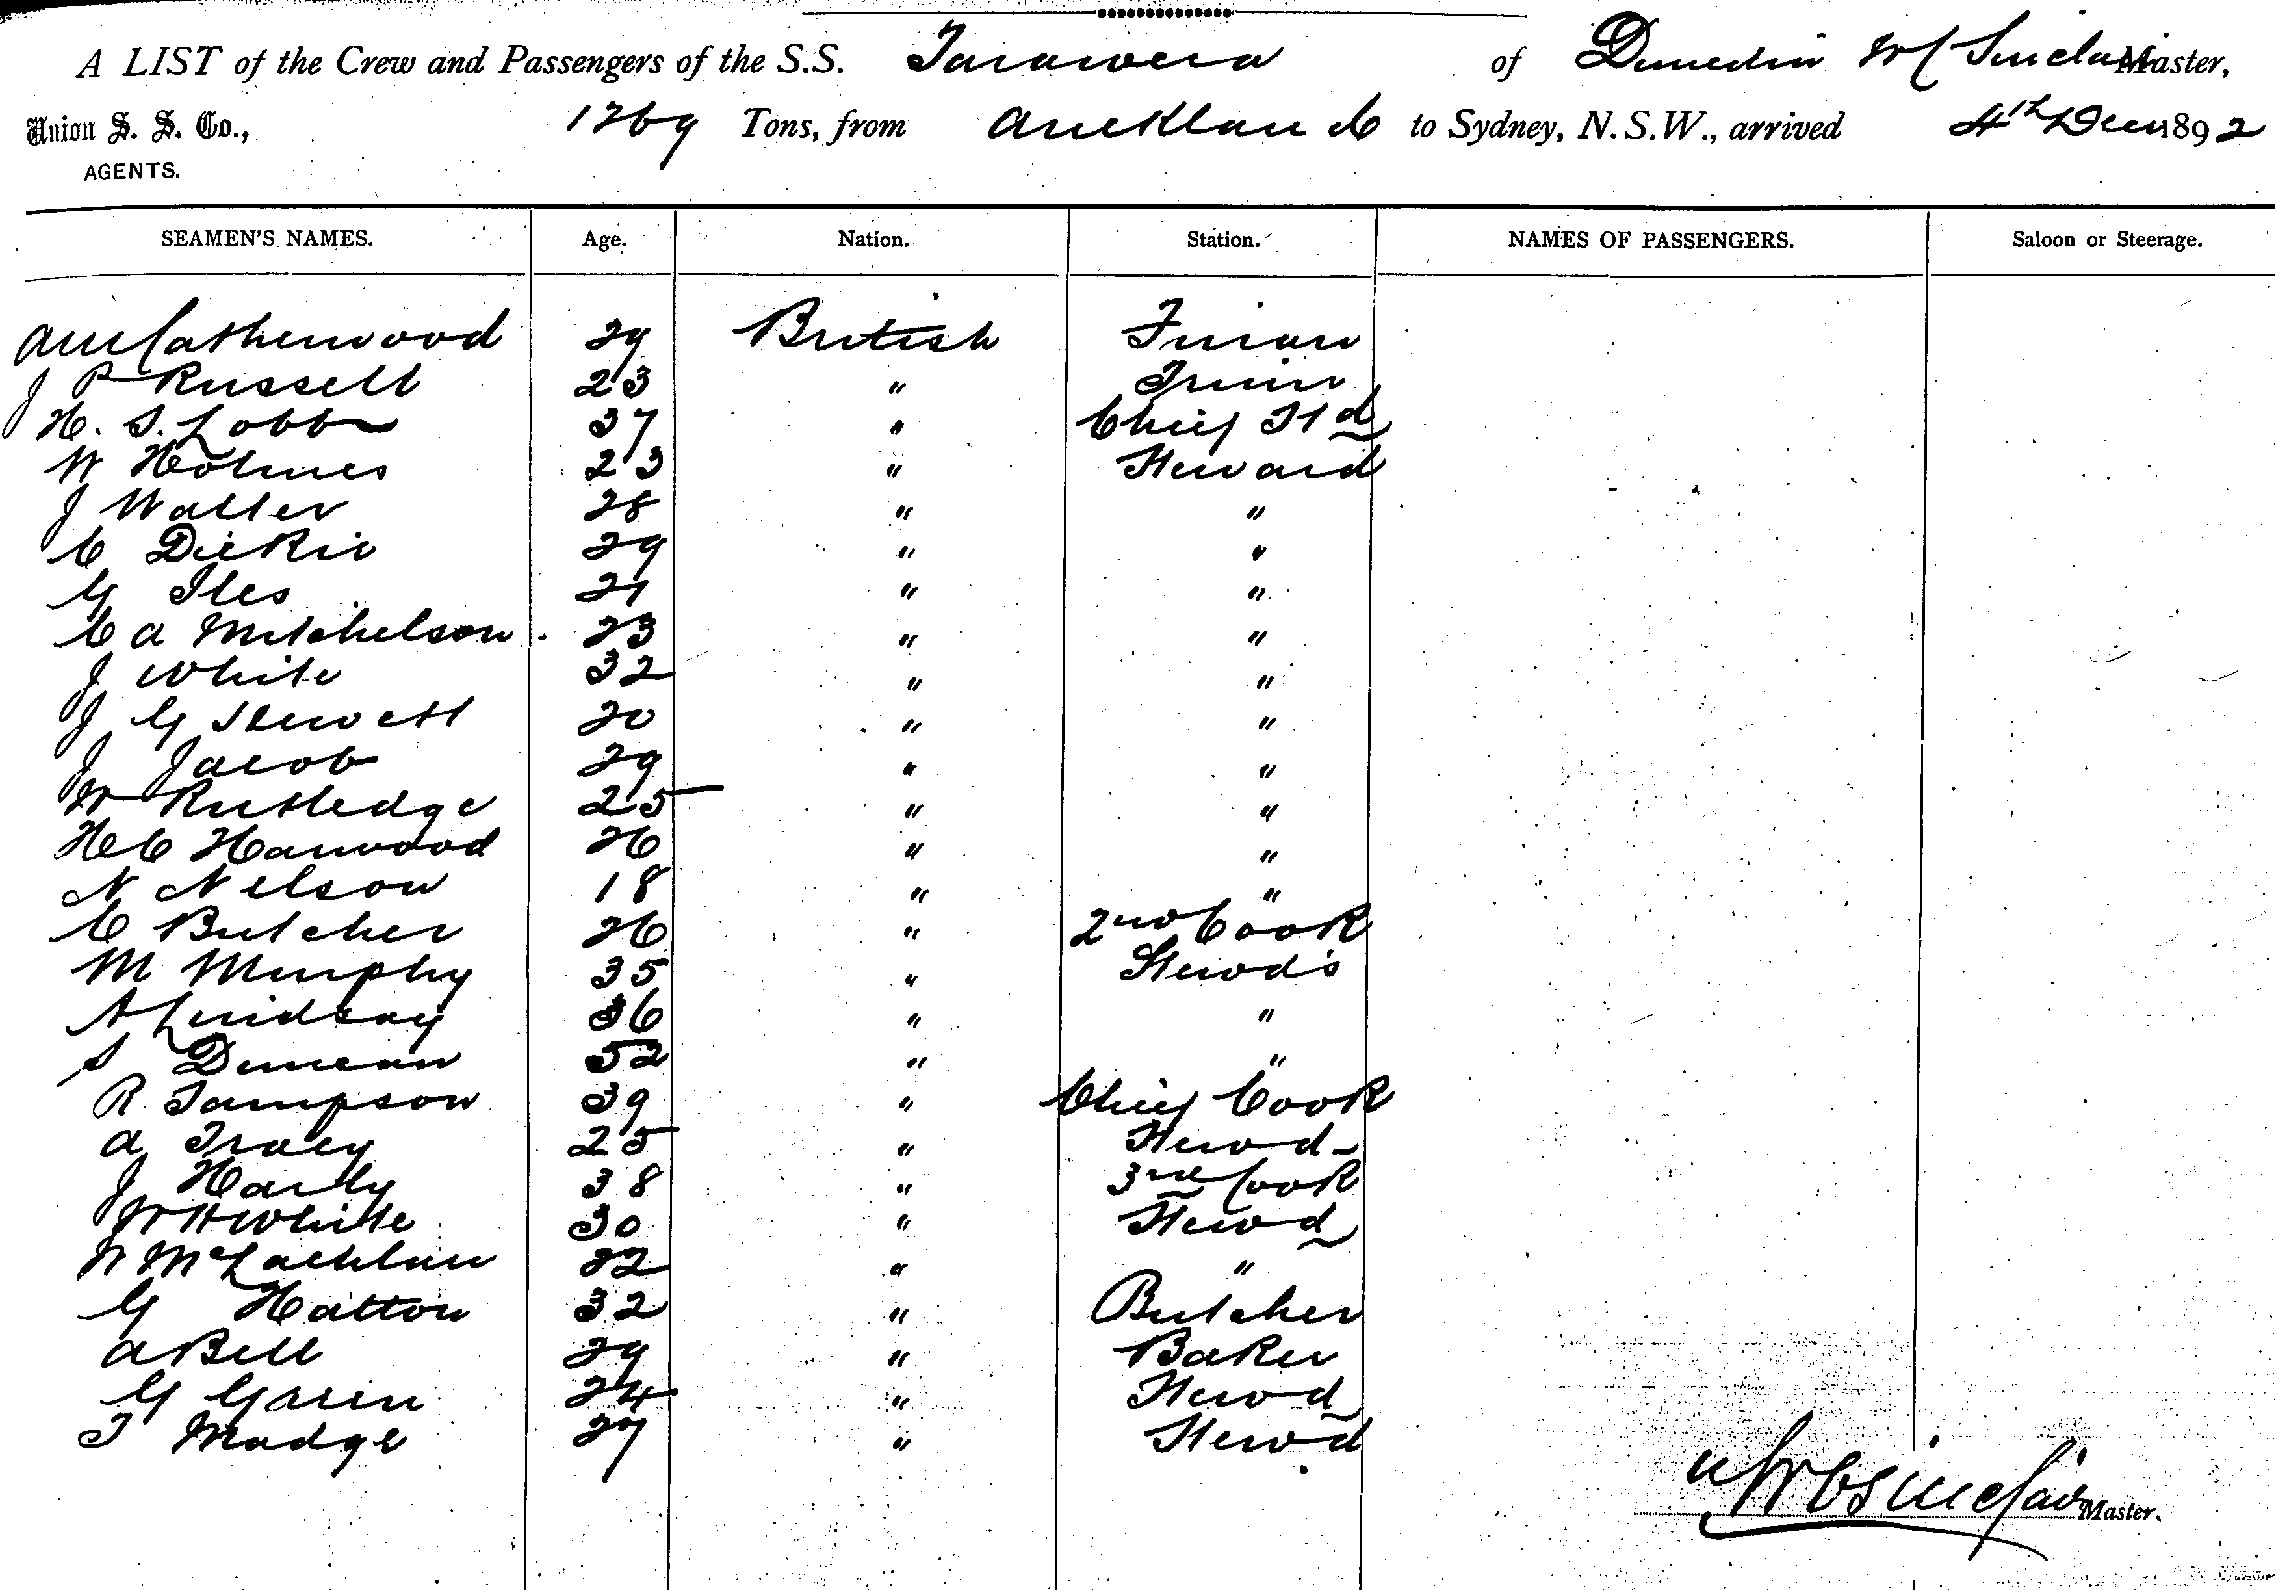 A LIST of the Crew and Passengers of the S.S. Tarawera of Dunedin W C Sinclair Master,
Union S. S. Co., 1269 Tons, from Auckland to Sydney, N.S.W., arrived 4th Decr 1892
AGENTS.
SEAMEN'S NAMES. Age. Nation. Station. NAMES OF PASSENGERS. Saloon or Steerage.
A McCatherwood 29 British Firman
J P Russell 23 " Trimr
H. S. Lobb 37 " Chief Std
W Holmes 23 " Steward
J Walter 28 " "
C Dickie 29 " "
G Iles 21 " "
C A Mitchelson 23 " "
J White 32 " "
J G Stewett 20 " "
J Jacob 29 " "
W Rutledge 25 " "
H C Harwood 26 " "
N Nelson 18 " "
C Butcher 26 " 2nd Cook
M Murphy 35 " Stewd's
A Lindsay 36 " "
S Duncan 52 " "
R Sampson 39 " Chief Cook
A Tracy 25 " Stewd
J Hardy 38 " 3rd Cook
W H White 30 " Stewd
W McLachlan 22 " "
G Hatton 32 " Butcher
A Bell 29 " Baker
G Garin 24 " Stewd
T Madge 27 " Stewd
W C Sinclair Master.